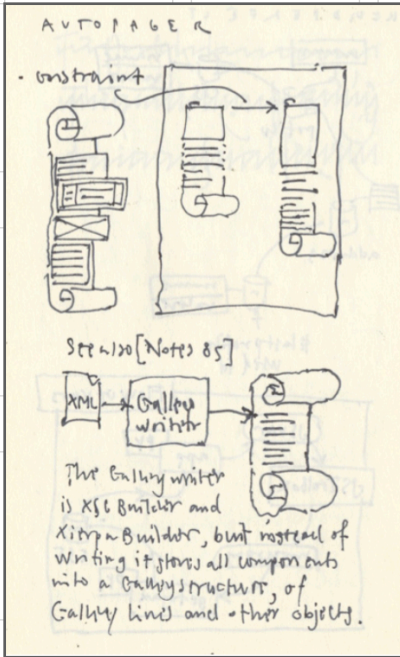 AUTOPAGER
· constraint
See also [Notes 85]
XML
Galley
writer
The Galley writer
is XSL Builder and
Xierpa Builder, but instead of
writing it stores all components
into a Galley structure, of
Galley lines and other objects.